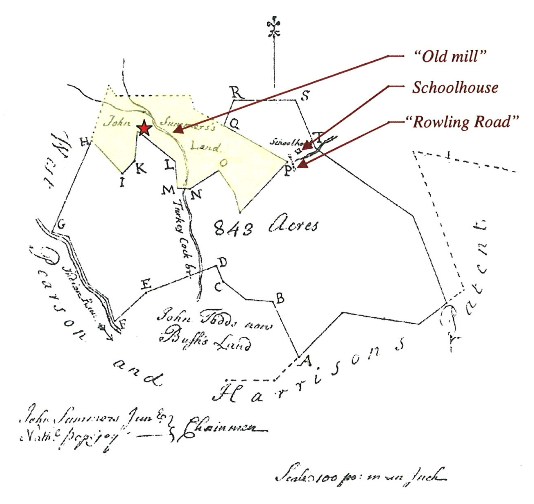 "Old mill"
Schoolhouse
"Rowling Road"
R
S
Q
T
John Summers's
Land
Schoolho
H
I
K
L
M
N
O
P
West
G
843 Acres
Turkey Cock br
Pearson and Harrisons Patent
Indian Run
F
E
D
C
B
A
John Todds now
Bush's Land
John Summers Jun
Chainmen
Scale 100 po: in an Inch